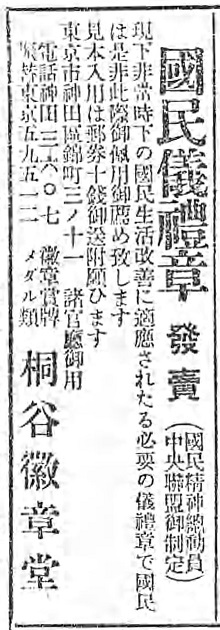 國民儀禮章 發賣
(國民精神總動員
中央聯盟御制定)
現下非常時下の國民生活改善に適應されたる必要の儀禮章で國民
は是非此際御佩用御薦め致します
見本入用は郵券十錢御送附願ひます
東京市神田區錦町三ノ十一 諸官廳御用
電話神田三六〇七 徽章賞牌
振替東京五九五一二 メダル類
桐谷徽章堂